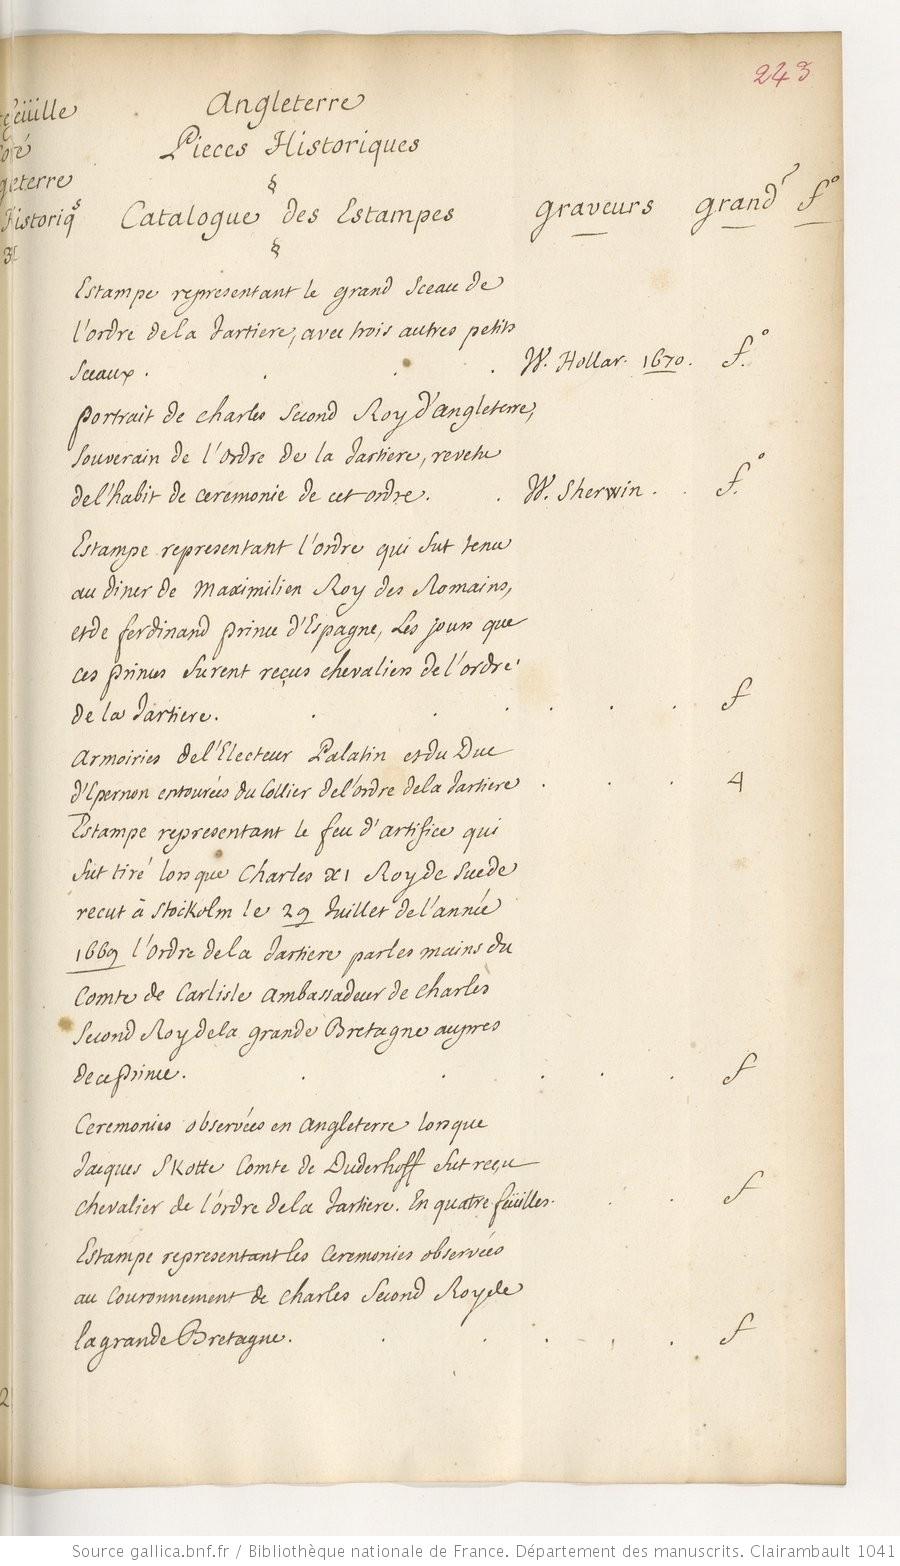 243
Angleterre
Pieces Historiques
§
Catalogue des Estampes graveurs grandr fo
§
Estampe representant le grand Sceau de
l'ordre de la Jartiere, avec trois autres petits
Sceaux . . . . W. Hollar. 1670. f.o
portrait de charles Second Roy d'angleterre,
Souverain de l'ordre de la Jartiere, revetu
de l'habit de ceremonie de cet ordre. . W. Sherwin . . f.o
Estampe representant l'ordre qui fut tenu
au diner de Maximilien Roy des Romains,
et de ferdinand prince d'Espagne, Les jours que
ces princes furent reçus chevaliers de l'ordre
de la Jartiere. . . . . . . f
Armoiries de l'Electeur Palatin et du Duc
d'Epernon entourées du Collier de l'ordre de la Jartiere . . . 4
Estampe representant le feu d'artifice qui
fut tiré lorsque Charles XI Roy de Suede
recut à Stockolm le 29 Juillet de l'année
1669 l'ordre de la Jartiere par les mains du
Comte de Carlisle ambassadeur de charles
Second Roy de la grande Bretagne aupres
de ce prince. . . . . . f
Ceremonies observées en angleterre lorsque
Jacques Skotte Comte de Duderhoff fut reçu
chevalier de l'ordre de la Jartiere. En quatre feüilles. . . f
Estampe representant les Ceremonies observées
au Couronnement de charles Second Roy de
la grande Bretagne. . . . . . f
feüille
gleterre
Historiqs
Source gallica.bnf.fr / Bibliothèque nationale de France. Département des manuscrits. Clairambault 1041